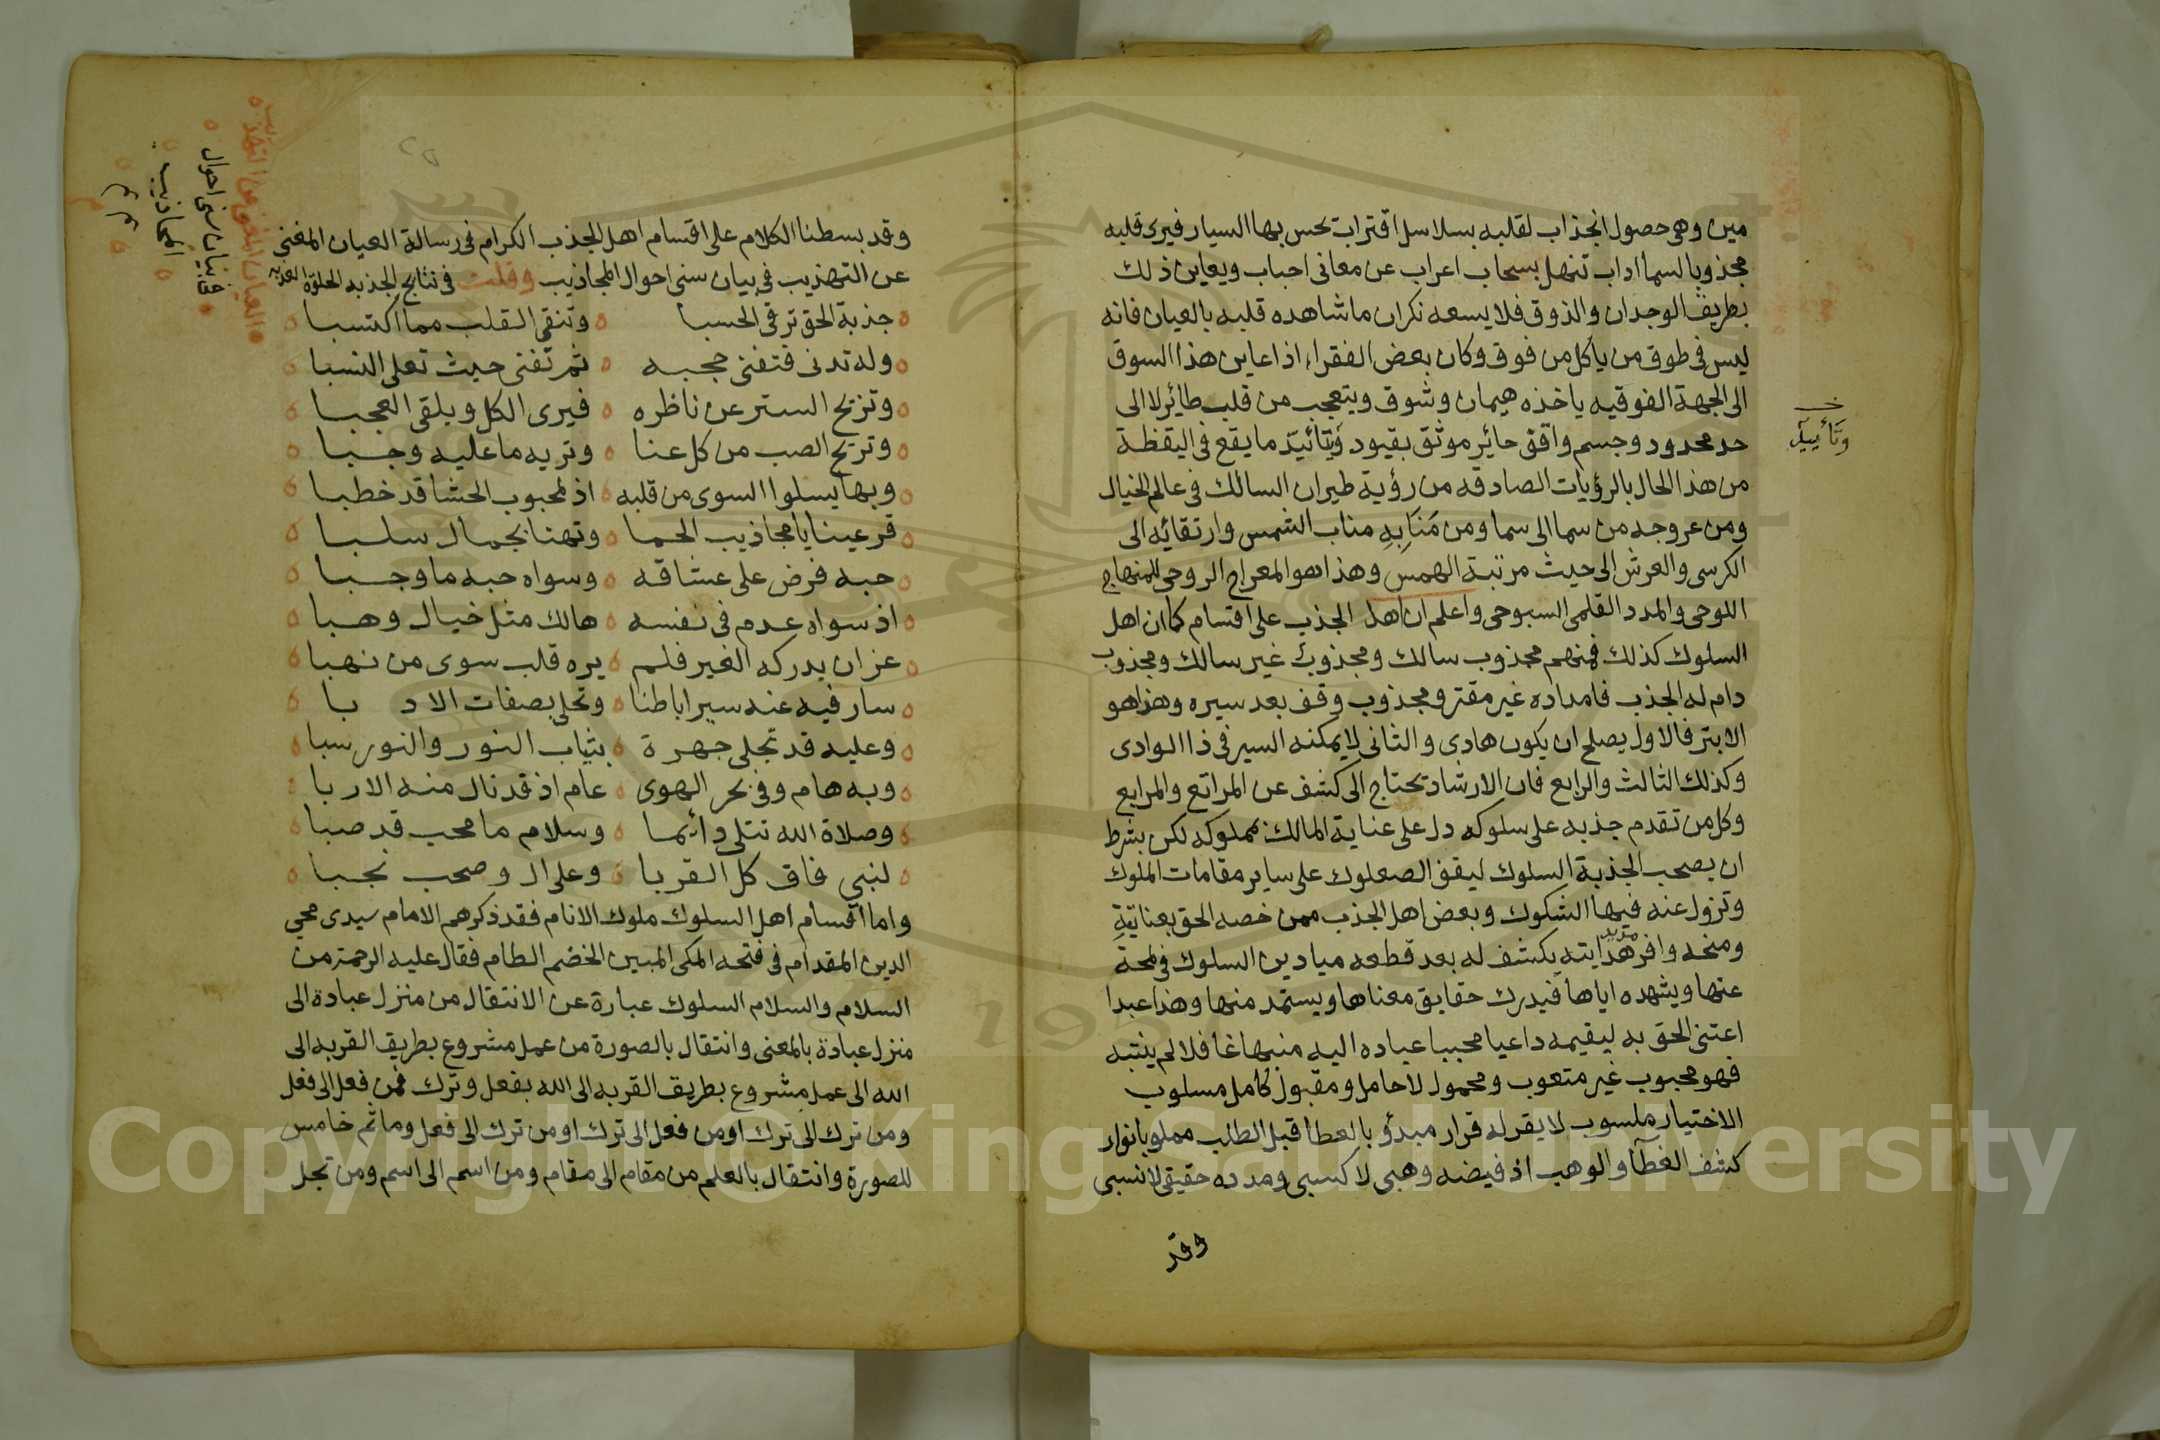 مين وهي حصول انجذاب لقلبه بسلاسل اقتراب تحس بها السيار فيرى قلبه
مجذوبا لسما اداب تنهل بسحاب اعراب عن معانى احباب ويعاين ذلك
بطريق الوجدان والذوق فلا يسعه نكران ما شاهده قلبه بالعيان فانه
ليس فى طوق من ياكل من فوق وكان بعض الفقراء اذا عاين هذا السوق
الى الجهة الفوقيه ياخذه هيمان وشوق ويتعجب من قلب طائر لا الى
حد محدود وجسم واقف حاير موثق بقيود وتائيد ما يقع فى اليقظة
من هذا الحال بالرؤيات الصادقه من رؤية طيران السالك فى عالم الخيال
ومن عروجه من سما الى سما ومن منابه مناب الشمس وارتقائه الى
الكرسى والعرش الى حيث مرتبة الهمس وهذا هو المعراج الروحى للمنهاج
اللوحى والمدد القلمى السبوحى واعلم ان اهل الجذب على اقسام كما ان اهل
السلوك كذلك فمنهم مجذوب سالك ومجذوب غير سالك ومجذوب
دام له الجذب فامداده غير مقتر ومجذوب وقف بعد سيره وهذا هو
الابتر فالاول يصلح ان يكون هادى والثانى لا يمكنه السير فى ذا الوادى
وكذلك الثالث والرابع فان الارشاد تحتاج الى كشف عن المراتع والمرابع
وكل من تقدم جذبه على سلوكه دل على عناية المالك بمملوكه لكن بشرط
ان يصحب الجذبة السلوك ليقف الصعلوك على ساير مقامات الملوك
وتزول عنه فيها الشكوك وبعض اهل الجذب ممن خصه الحق بعنايته
ومنحه وافر هدايته يكشف له بعد قطعه ميادين السلوك فى لمحة
مزيد
عنها ويشهده اياها فيدرك حقايق معناها ويستمد منها وهذا عبدا
اعتنى الحق به ليقيمه داعيا محببا عباده اليه منبها غافلا لم ينتبه
فهو محبوب غير متعوب ومحمول لا حامل ومقبول كامل مسلوب
الاختيار ملسوب لا يقر له قرار مبدؤ بالعطا قبل الطلب مملو بانوار
كشف الغطآ والوهب اذ فيضه وهبى لا كسبى ومدده حقيقى لا نسبى
وقد
خ
وتأييد
وقد بسطنا الكلام على اقسام اهل الجذب الكرام فى رسالة العيان المغنى
عن التهذيب فى بيان سنى احوال المجاذيب وقلت فى نتايج الجذبه الحلوة العذبه
جذبة الحق ترقى الحسبا وتنقى القلب مما اكتسبا
وله تدنى فتفنى حجبه ثم تفنى حيث تعلى النسبا
وتزيح الستر عن ناظره فيرى الكل ويلقى العجبا
وتريح الصب من كل عنا وتريه ما عليه وجبا
وبها يسلوا السوى من قلبه اذ لمحبوب الحشا قد خطبا
قر عينا يا مجاذيب الحما وتهنا بجمال سلبا
حبه فرض على عشاقه وسواه حبه ما وجبا
اذ سواه عدم فى نفسه هالك مثل خيال وهبا
عز ان يدركه الغير فلم يره قلب سوى من نهبا
سار فيه عنه سيرا باطنا وتحلى بصفات الاد با
وعليه قد تجلى جهرة بثياب النور والنور سبا
وبه هام وفى بحر الهوى عام اذ قد نال منه الاربا
وصلاة الله تتلى دائما وسلام ما محب قد صبا
لنبي فاق كل القربا وعلى ال وصحب نجبا
واما اقسام اهل السلوك ملوك الانام فقد ذكرهم الامام سيدى محي
الدين المقدام فى فتحه المكى المبين الخضم الطام فقال عليه الرحمة من
السلام والسلام السلوك عبارة عن الانتقال من منزل عبادة الى
منزل عبادة بالمعنى وانتقال بالصورة من عمل مشروع بطريق القربه الى
الله الى عمل مشروع بطريق القربه الى الله بفعل وترك فمن فعل الى فعل
ومن ترك الى ترك او من فعل الى ترك او من ترك الى فعل وما ثم خامس
للصورة وانتقال بالعلم من مقام الى مقام ومن اسم الى اسم ومن تجل
العيان المغنى عن التهذيب
فى بيان سنى احوال
المجاذيب
م م
Copyright © King Saud University